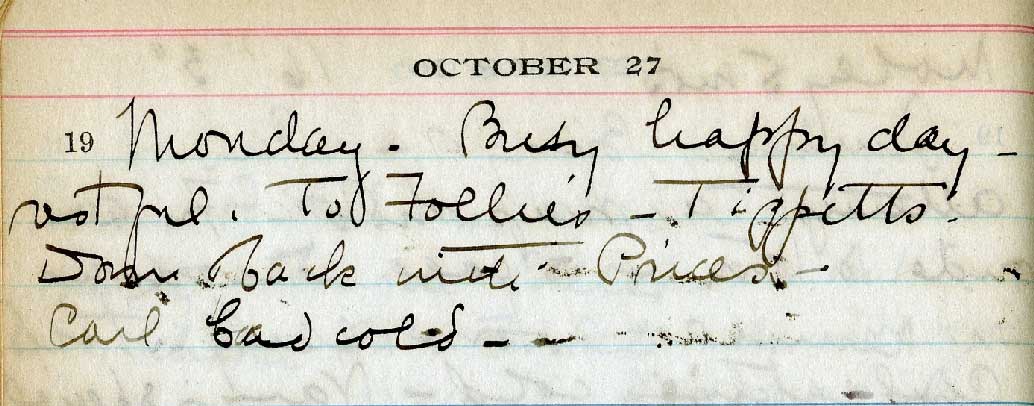 OCTOBER 27
19 Monday. Busy happy day -
restful. To Follies - Tippitts.
Down & back with Prices -
Carl bad cold -